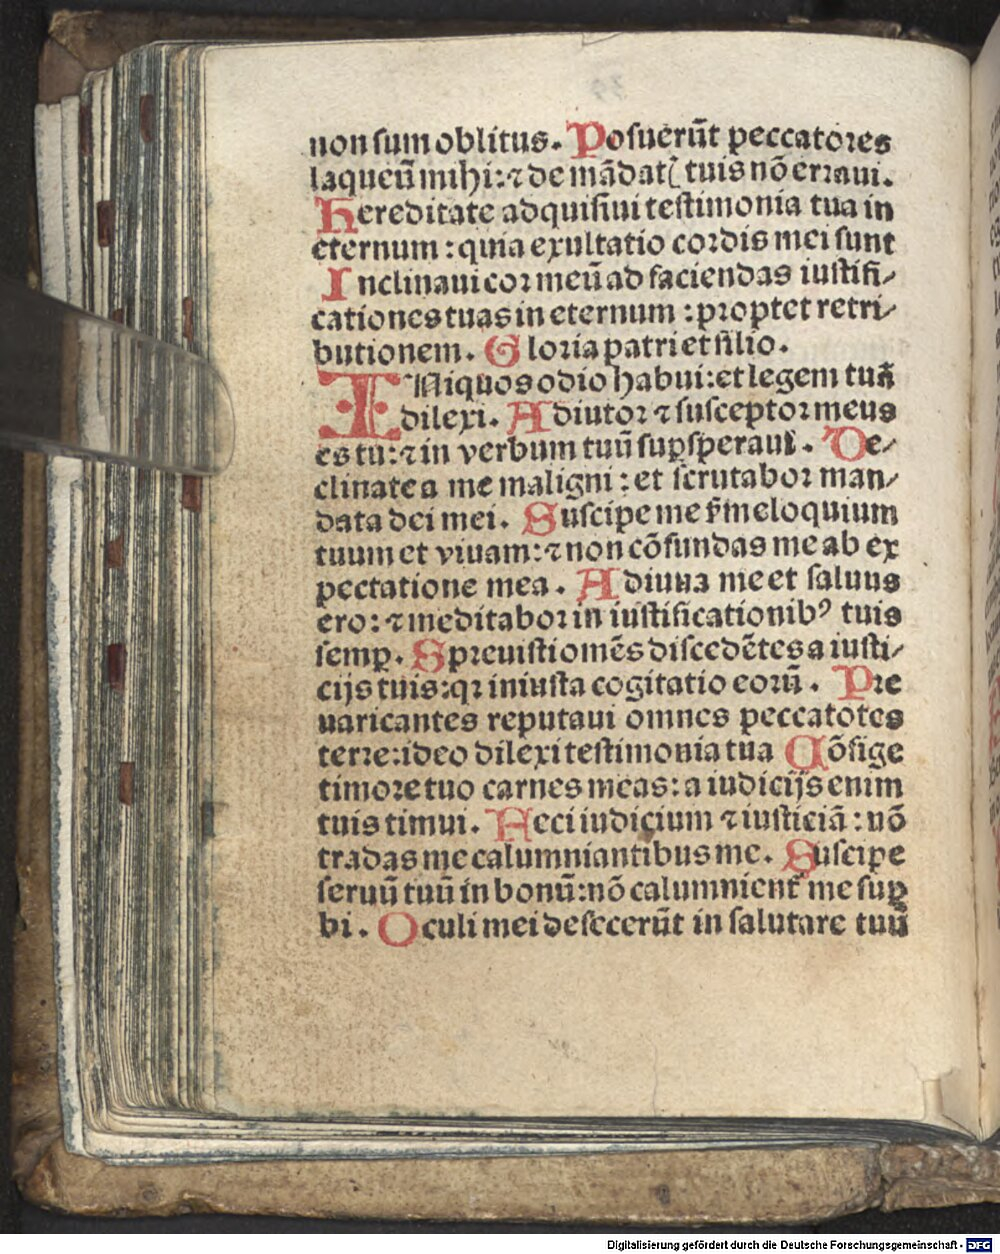 non sum oblitus. Posuerūt peccatores
laqueū mihi: ⁊ de mādatꝭ tuis nō erraui.
Hereditate adquisiui testimonia tua in
eternum: quia exultatio cordis mei sunt
Inclinaui cor meū ad faciendas iustifi⸗
cationes tuas in eternum: proptet retri⸗
butionem. Gloria patri et filio.
INiquos odio habui: et legem tuā
dilexi. Adiutor ⁊ susceptor meus
es tu: ⁊ in verbum tuū suꝑsperaui. De⸗
clinate a me maligni: et scrutabor man⸗
data dei mei. Suscipe me ẜm eloquium
tuum et viuam: ⁊ non cōfundas me ab ex
pectatione mea. Adiuua me et saluus
ero: ⁊ meditabor in iustificationibꝰ tuis
semꝑ. Spreuisti omēs discedētes a iusti⸗
cijs tuis: qꝛ iniusta cogitatio eorū. Pre
uaricantes reputaui omnes peccatotes
terre: ideo dilexi testimonia tua Cōfige
timore tuo carnes meas: a iudicijs enim
tuis timui. Feci iudicium ⁊ iusticiā: nō
tradas me calumniantibus me. Suscipe
seruū tuū in bonū: nō calumnient᷑ me suꝑ
bi. Oculi mei defecerūt in salutare tuū
39
Digitalisierung gefördert durch die Deutsche Forschungsgemeinschaft - DFG